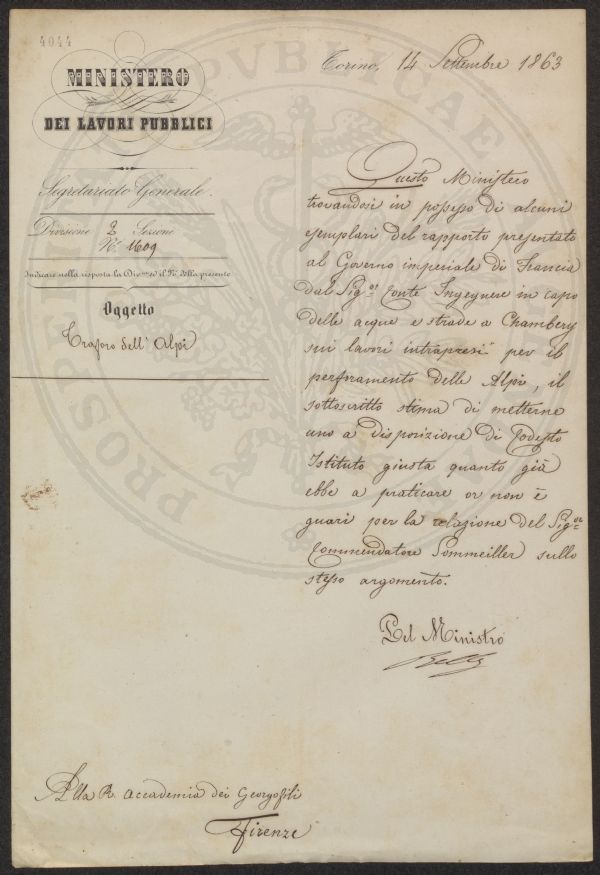 4044
MINISTERO
DEI LAVORI PUBBLICI
Segretariato Generale
Divisione 2 Sezione
N.° 11609
Indicare nella risposta la Div.ne ed il N.° della presente
Oggetto
Traforo dell' Alpi
Torino, 14 Settembre 1863
Questo Ministero
trovandosi in possesso di alcuni
esemplari del rapporto presentato
al Governo imperiale di Francia
dal Sig.or Conte Ingegnere in capo
delle acque e strade a Chambery
sui lavori intrapresi per il
perforamento delle Alpi, il
sottoscritto stima di metterne
uno a disposizione di Codesto
Istituto giusta quanto già
ebbe a praticare or non è
guari per la relazione del Sig.or
Commendatore Sommeiller sullo
stesso argomento.
Pel Ministro
Alla R. Accademia dei Georgofili
Firenze
PUBLICAE
PROSPE